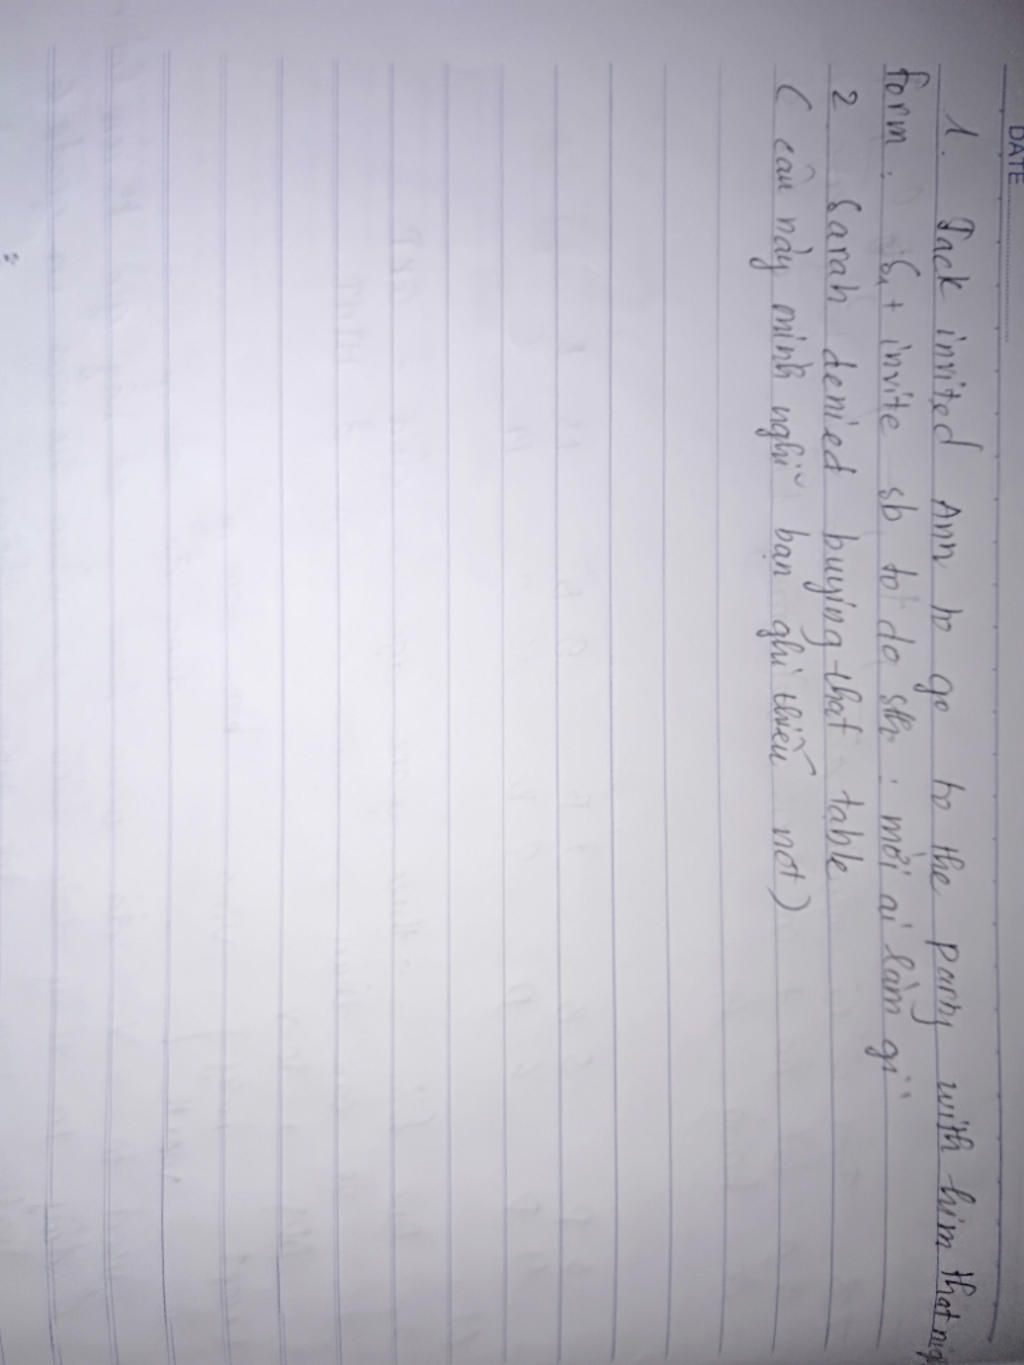 DATE
1. Jack invited Ann to go to the party with him that nig
form: S + invite sb to do sth: mời ai làm gì
2 Sarah denied buying that table
(câu này mình nghĩ bạn ghi thiếu not)